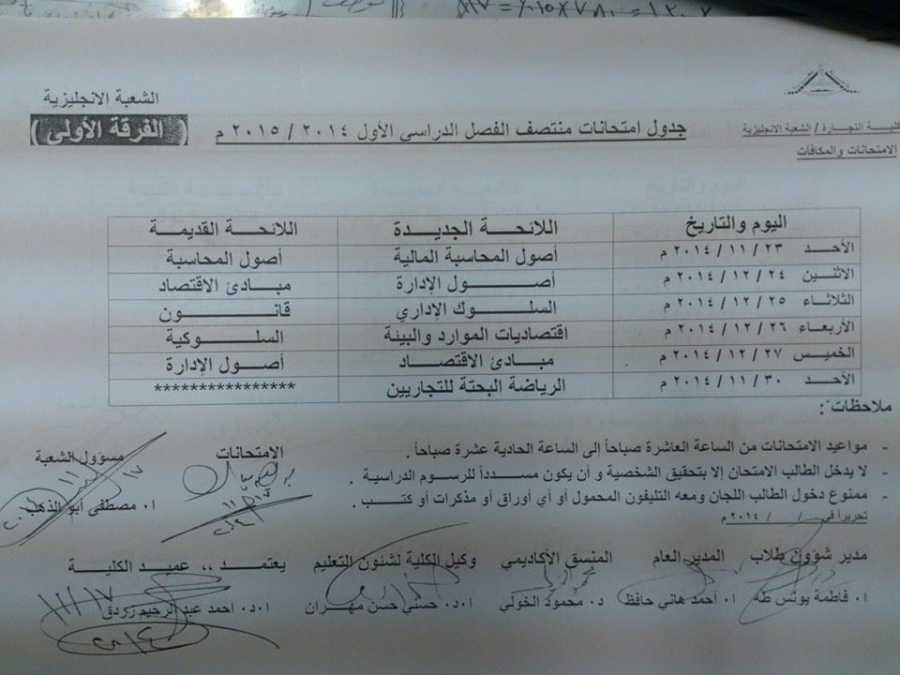 الشعبة الانجليزية
( الفرقة الأولى )
جدول امتحانات منتصف الفصل الدراسي الأول ٢٠١٤ / ٢٠١٥ م
كلية التجارة / الشعبة الانجليزية
الامتحانات والمكافآت
اليوم والتاريخ اللائحة الجديدة اللائحة القديمة
الأحد ٢٣ / ١١ / ٢٠١٤ م أصول المحاسبة المالية أصول المحاسبة
الاثنين ٢٤ / ١٢ / ٢٠١٤ م أصول الإدارة مبادئ الاقتصاد
الثلاثاء ٢٥ / ١٢ / ٢٠١٤ م السلوك الإداري قانون
الأربعاء ٢٦ / ١٢ / ٢٠١٤ م اقتصاديات الموارد والبيئة السلوكية
الخميس ٢٧ / ١٢ / ٢٠١٤ م مبادئ الاقتصاد أصول الإدارة
الأحد ٣٠ / ١١ / ٢٠١٤ م الرياضة البحتة للتجاريين ****************
ملاحظات :
- مواعيد الامتحانات من الساعة العاشرة صباحاً إلى الساعة الحادية عشرة صباحاً .
- لا يدخل الطالب الامتحان إلا بتحقيق الشخصية و أن يكون مسدداً للرسوم الدراسية .
- ممنوع دخول الطالب اللجان ومعه التليفون المحمول أو أي أوراق أو مذكرات أو كتب .
تحريراً في / / ٢٠١٤م
الامتحانات مسؤول الشعبة
أ. مصطفى أبو الذهب
مدير شوؤن طلاب المدير العام المنسق الأكاديمي وكيل الكلية لشئون التعليم يعتمد ،، عميد الكلية
أ. فاطمة يونس طه أ. أحمد هاني حافظ د. محمود الخولي أ.د. حسني حسن مهران أ.د. احمد عبد الرحيم زردق